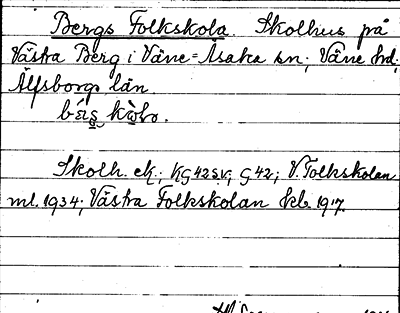 Bergs Folkskola. Skolhus på
Västra Berg i Väne-Åsaka sn; Väne hd;
Älfsborgs län.
Skolh. ek.; KG42s.v; G42; V. Folkskolan
ml. 1934; Västra Folkskolan Skb. 1917.